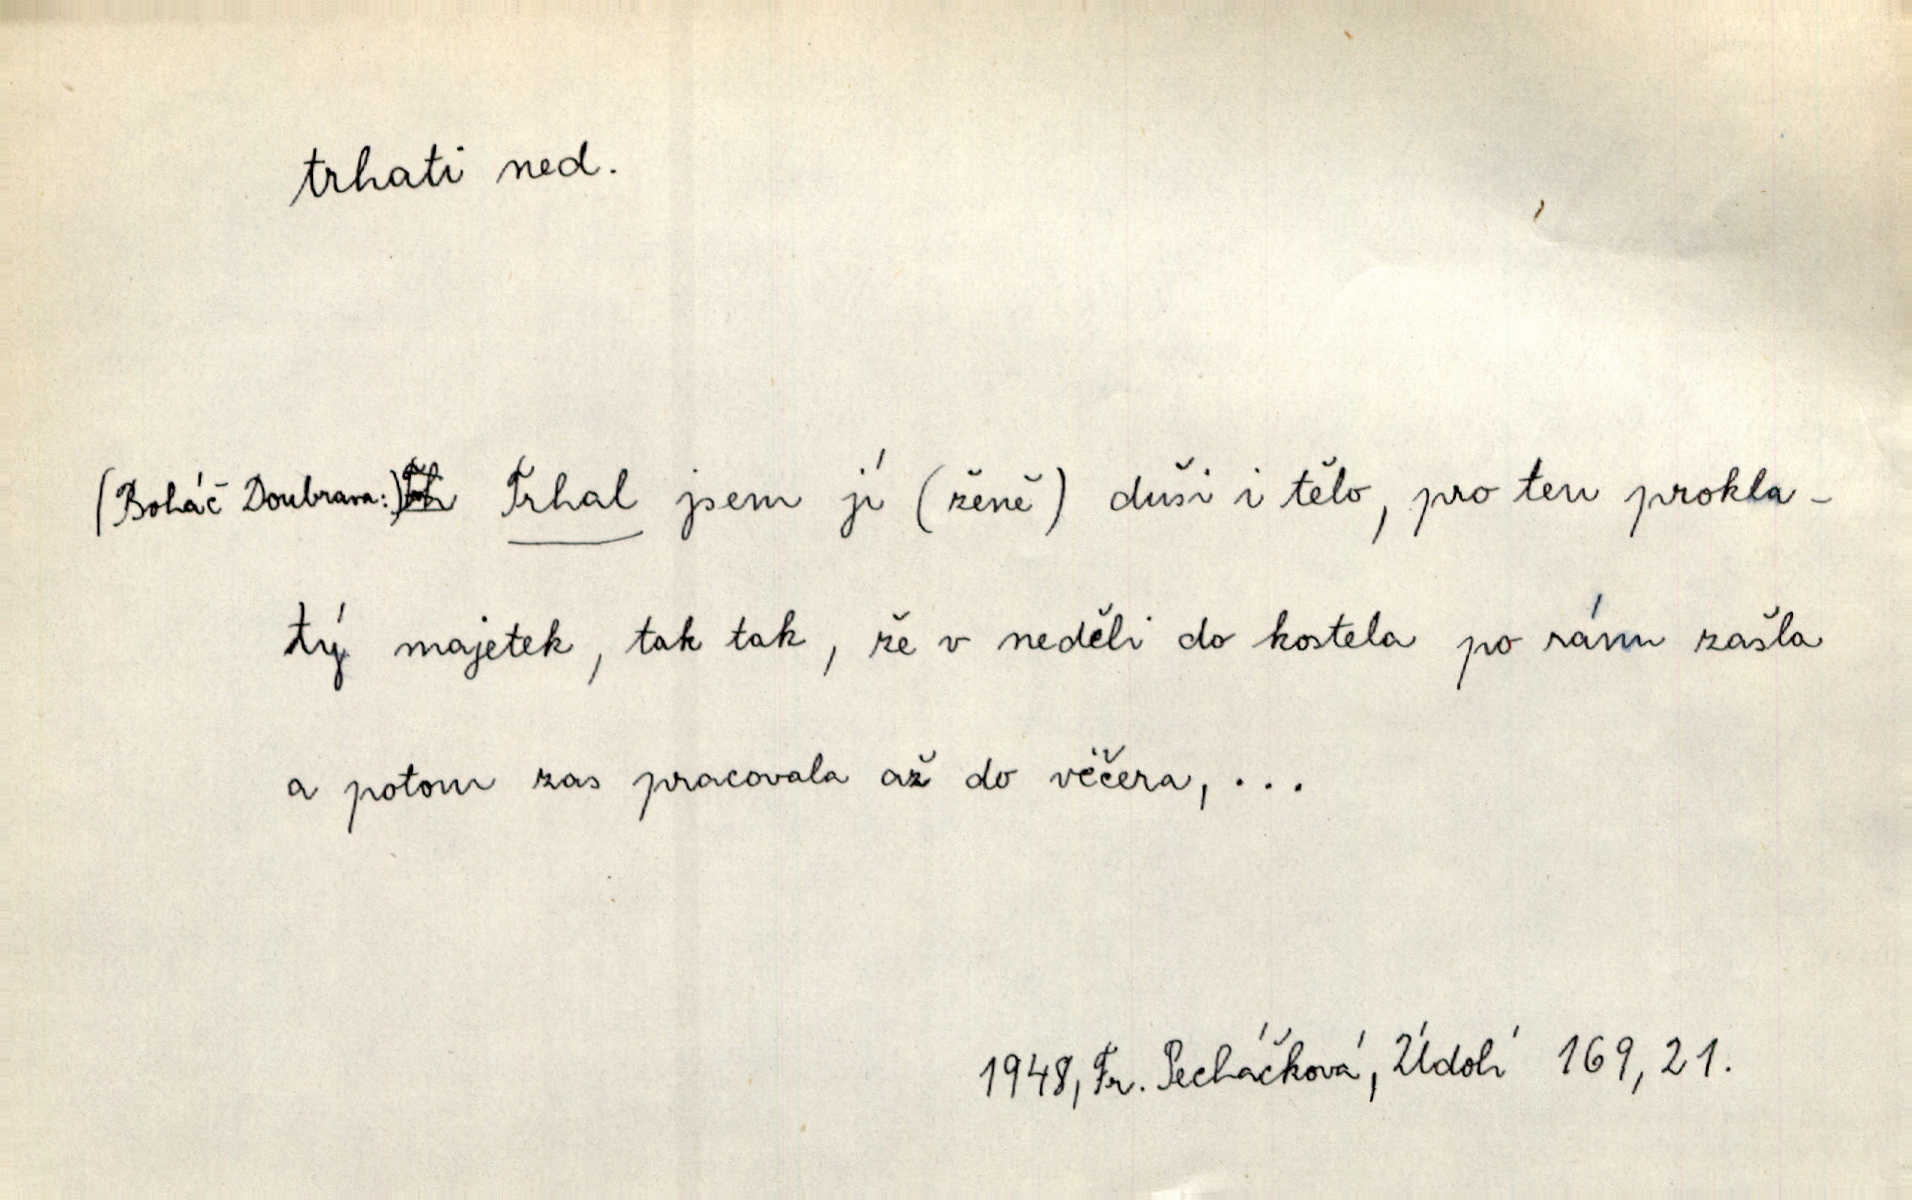 trhati ned.
(Boháč Doubrava:) Trhal jsem jí (ženě) duši i tělo, pro ten prokla-
tý majetek, tak tak, že v neděli do kostela po ránu zašla
a potom zas pracovala až do věčera, ...
1948, Fr. Pecháčková, Údolí 169, 21.